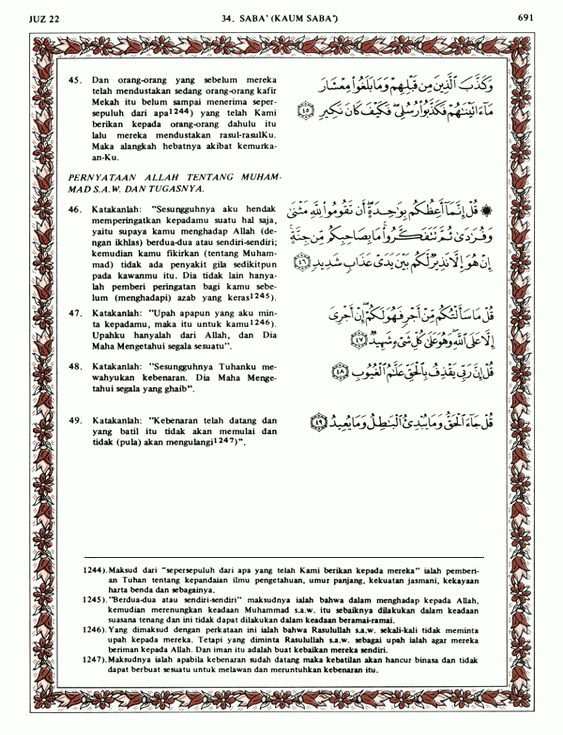 JUZ 22
34. SABA' (KAUM SABA')
691
45. Dan orang-orang yang sebelum mereka
telah mendustakan sedang orang-orang kafir
Mekah itu belum sampai menerima seper-
sepuluh dari apa1244) yang telah Kami
berikan kepada orang-orang dahulu itu
lalu mereka mendustakan rasul-rasulKu.
Maka alangkah hebatnya akibat kemurka-
an-Ku.
وَكَذَّبَ ٱلَّذِينَ مِن قَبْلِهِمْ وَمَا بَلَغُوا۟ مِعْشَارَ
مَآ ءَاتَيْنَٰهُمْ فَكَذَّبُوا۟ رُسُلِى فَكَيْفَ كَانَ نَكِيرِ ٤٥
PERNYATAAN ALLAH TENTANG MUHAM-
MAD S.A.W. DAN TUGASNYA.
46. Katakanlah: "Sesungguhnya aku hendak
memperingatkan kepadamu suatu hal saja,
yaitu supaya kamu menghadap Allah (de-
ngan ikhlas) berdua-dua atau sendiri-sendiri;
kemudian kamu fikirkan (tentang Muham-
mad) tidak ada penyakit gila sedikitpun
pada kawanmu itu. Dia tidak lain hanya-
lah pemberi peringatan bagi kamu sebe-
lum (menghadapi) azab yang keras1245).
۞ قُلْ إِنَّمَآ أَعِظُكُم بِوَٰحِدَةٍ أَن تَقُومُوا۟ لِلَّهِ مَثْنَىٰ
وَفُرَٰدَىٰ ثُمَّ تَتَفَكَّرُوا۟ مَا بِصَاحِبِكُم مِّن جِنَّةٍ
إِنْ هُوَ إِلَّا نَذِيرٌ لَّكُم بَيْنَ يَدَىْ عَذَابٍ شَدِيدٍ ٤٦
47. Katakanlah: "Upah apapun yang aku min-
ta kepadamu, maka itu untuk kamu1246).
Upahku hanyalah dari Allah, dan Dia
Maha Mengetahui segala sesuatu".
قُلْ مَا سَأَلْتُكُم مِّنْ أَجْرٍ فَهُوَ لَكُمْ إِنْ أَجْرِىَ
إِلَّا عَلَى ٱللَّهِ وَهُوَ عَلَىٰ كُلِّ شَىْءٍ شَهِيدٌ ٤٧
48. Katakanlah: "Sesungguhnya Tuhanku me-
wahyukan kebenaran. Dia Maha Menge-
tahui segala yang ghaib".
قُلْ إِنَّ رَبِّى يَقْذِفُ بِٱلْحَقِّ عَلَّٰمُ ٱلْغُيُوبِ ٤٨
49. Katakanlah: "Kebenaran telah datang dan
yang batil itu tidak akan memulai dan
tidak (pula) akan mengulangi1247)".
قُلْ جَآءَ ٱلْحَقُّ وَمَا يُبْدِئُ ٱلْبَٰطِلُ وَمَا يُعِيدُ ٤٩
1244). Maksud dari "sepersepuluh dari apa yang telah Kami berikan kepada mereka" ialah pemberi-
an Tuhan tentang kepandaian ilmu pengetahuan, umur panjang, kekuatan jasmani, kekayaan
harta benda dan sebagainya.
1245). "Berdua-dua atau sendiri-sendiri" maksudnya ialah bahwa dalam menghadap kepada Allah,
kemudian merenungkan keadaan Muhammad s.a.w. itu sebaiknya dilakukan dalam keadaan
suasana tenang dan ini tidak dapat dilakukan dalam keadaan beramai-ramai.
1246). Yang dimaksud dengan perkataan ini ialah bahwa Rasulullah s.a.w. sekali-kali tidak meminta
upah kepada mereka. Tetapi yang diminta Rasulullah s.a.w. sebagai upah ialah agar mereka
beriman kepada Allah. Dan iman itu adalah buat kebaikan mereka sendiri.
1247). Maksudnya ialah apabila kebenaran sudah datang maka kebatilan akan hancur binasa dan tidak
dapat berbuat sesuatu untuk melawan dan meruntuhkan kebenaran itu.